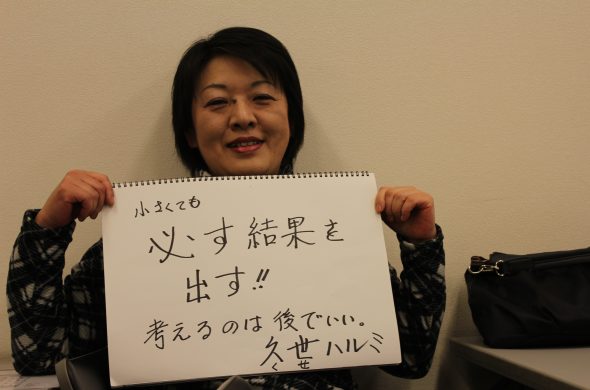 小さくても
必ず結果を
出す!!
考えるのは後でいい。
久世ハルミ
くせ